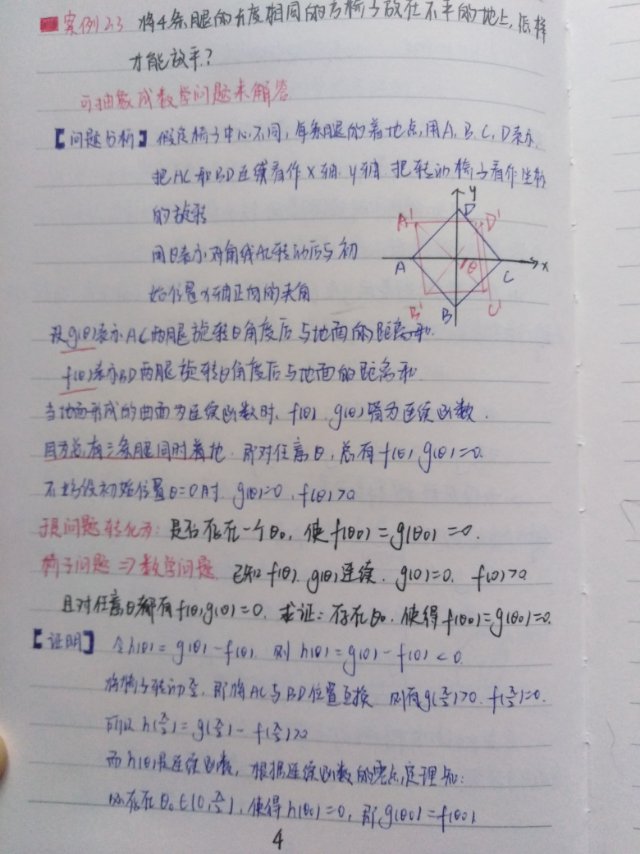 案例2.3 将4条腿的长度相同的方椅子放在不平的地上,怎样
才能放平?
可抽象成数学问题来解答
【问题分析】假定椅子中心不同,每条腿的着地点,用A、B、C、D表示
把AC和BD连线看作X轴、y轴 把转动椅子看作坐标
的旋转
用θ表示对角线AC转动后与初
始位置X轴正向的夹角
A' D D' y
A θ C x
B' B C'
设g(θ)表示AC两腿旋转θ角度后与地面的距离和.
f(θ)表示BD两腿旋转θ角度后与地面的距离和
当地面形成的曲面为连续函数时, f(θ) g(θ)皆为连续函数.
因为总有三条腿同时着地. 即对任意θ, 总有f(θ)g(θ)=0.
不妨设初始位置θ=0时. g(θ)=0, f(θ)>0
于是问题转化为: 是否存在一个θ0, 使f(θ0)=g(θ0)=0.
椅子问题⇒数学问题 已知f(θ), g(θ)连续. g(0)=0. f(0)>0
且对任意θ都有f(θ)g(θ)=0. 求证: 存在θ0. 使得f(θ0)=g(θ0)=0.
【证明】 令h(θ)=g(θ)-f(θ). 则 h(0)=g(0)-f(0)<0.
将椅子转动π/2, 即将AC与BD位置互换 则有g(π/2)>0. f(π/2)=0.
所以 h(π/2)=g(π/2)-f(π/2)>0
而h(θ)是连续函数, 根据连续函数的零点定理知:
必存在θ0∈(0,π/2), 使得h(θ0)=0, 即g(θ0)=f(θ0)
4